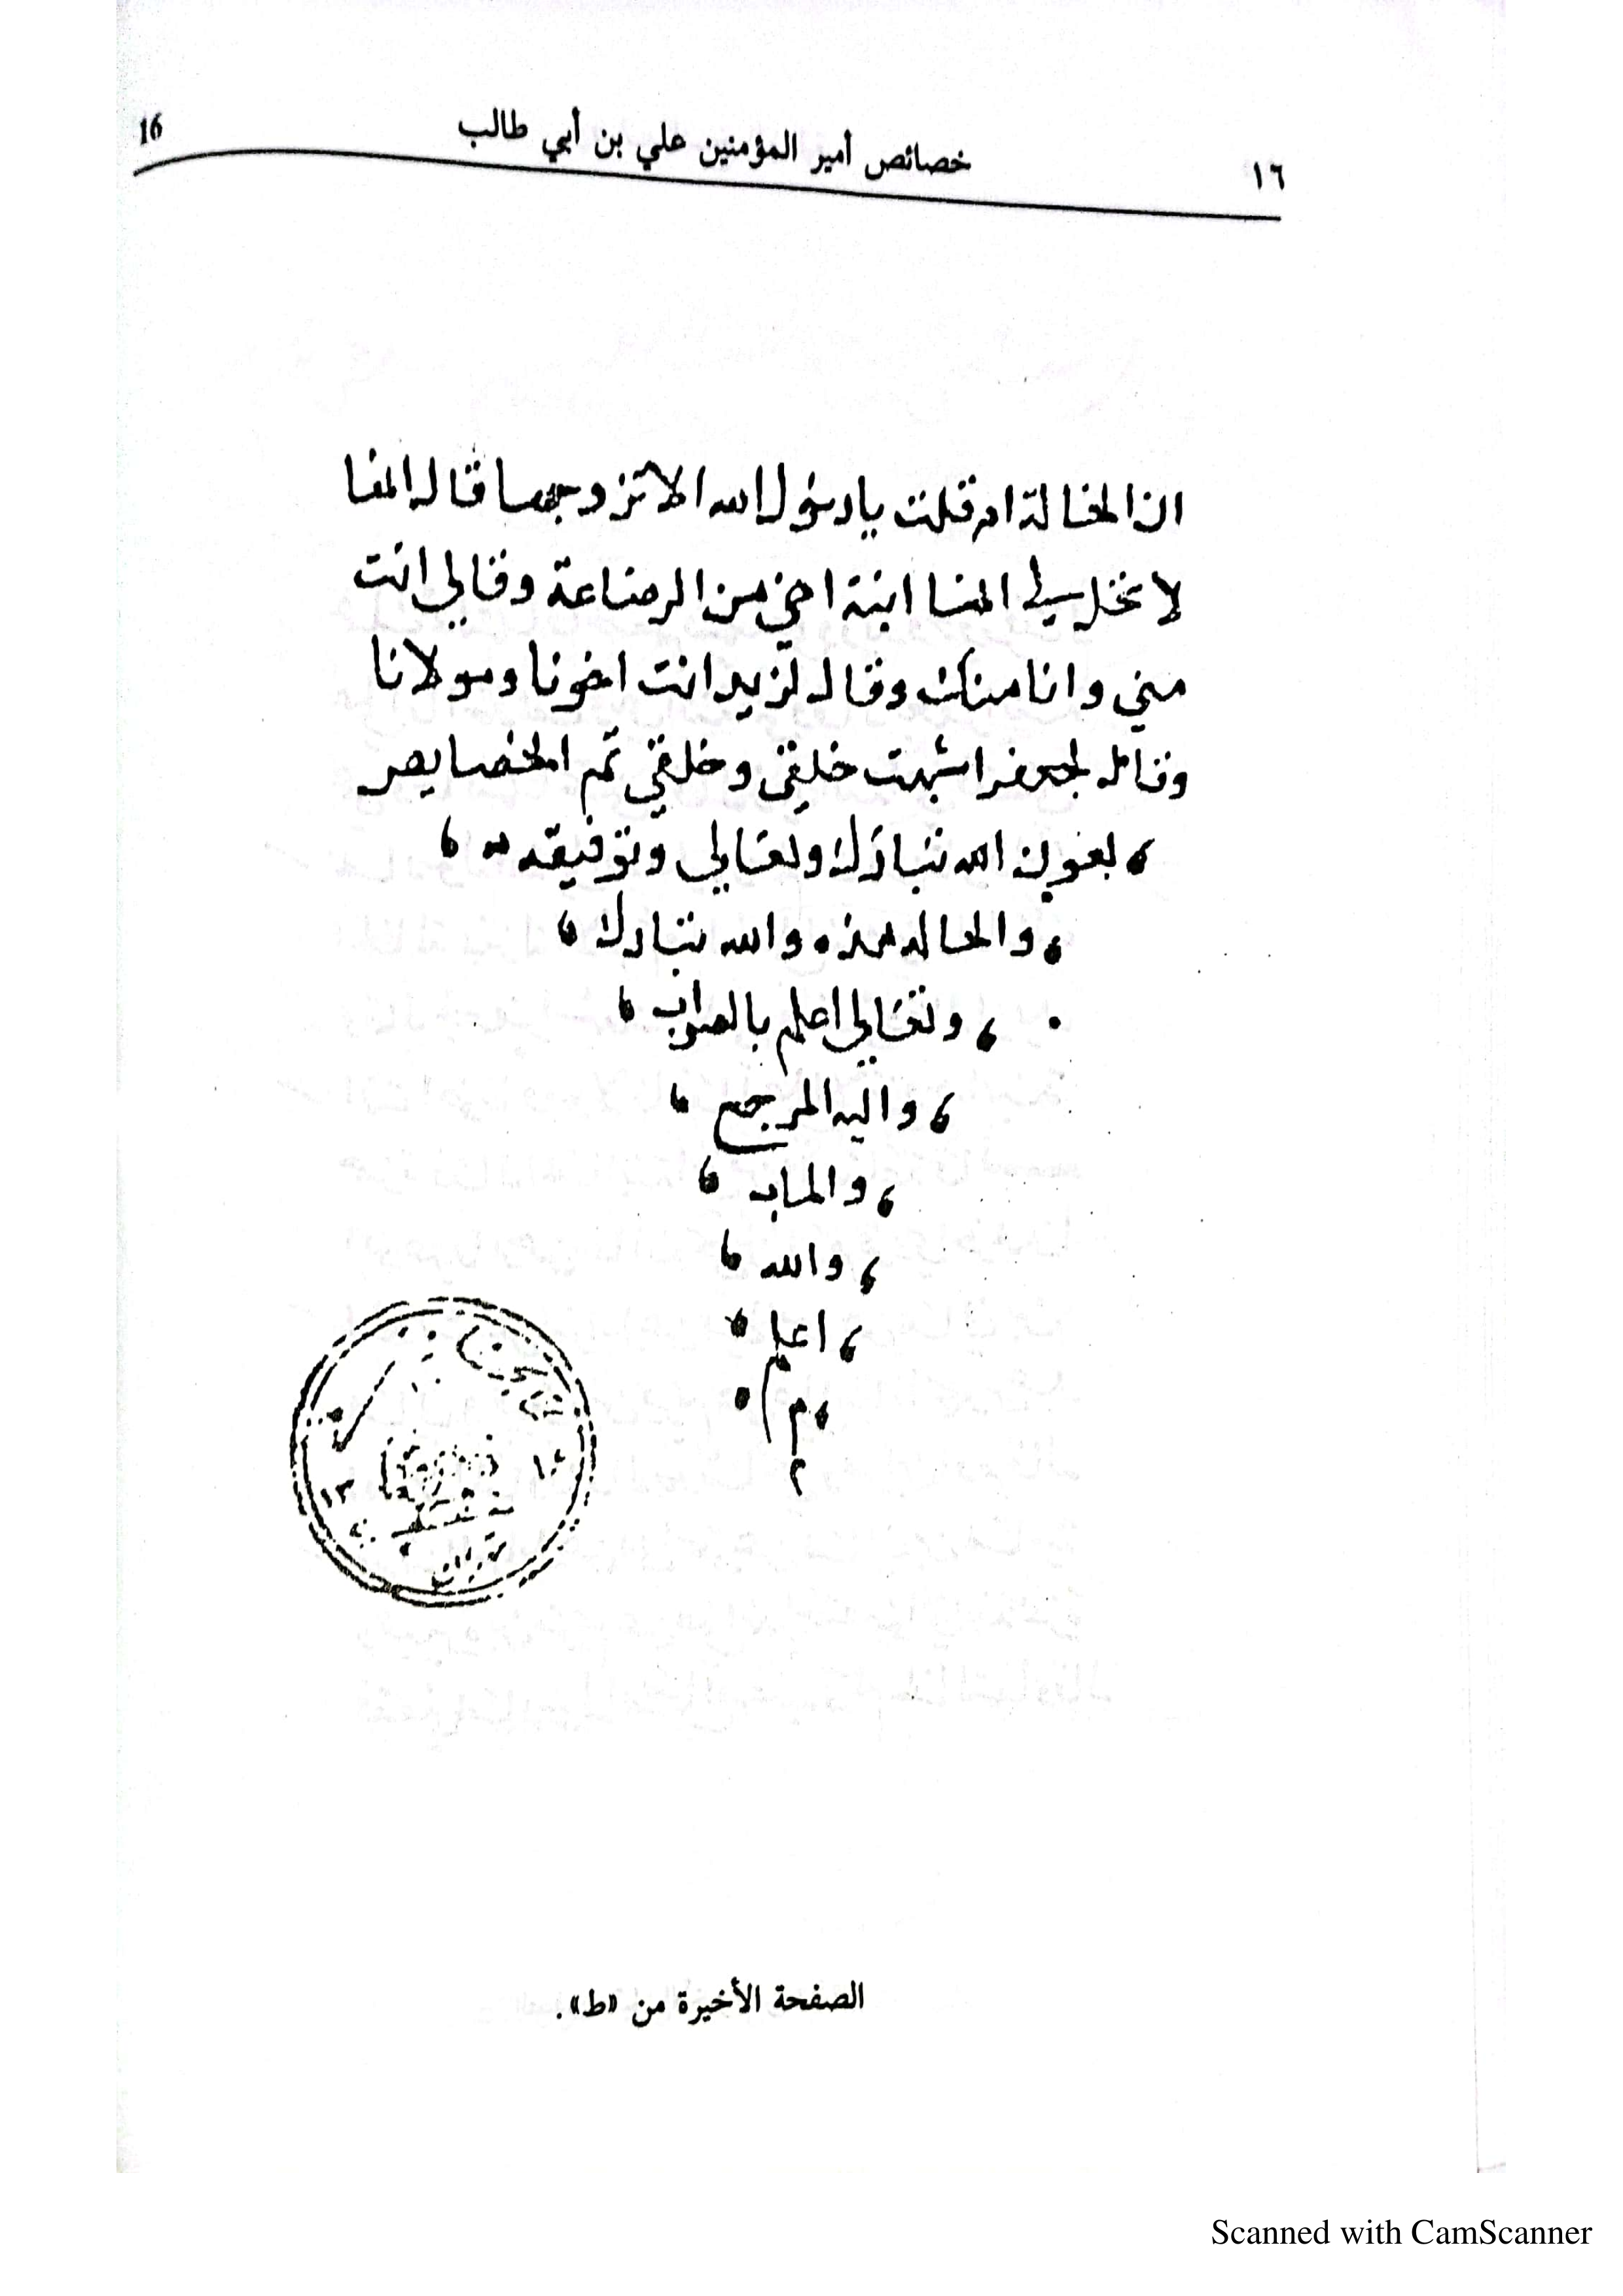 ١٦ خصائص أمير المؤمنين علي بن أبي طالب 16
ان الخالة ام قلت يا رسول الله الا تزوجها قال انها
لا تحل لي انها ابنة اخي من الرضاعة وقال لي انت
مني وانا منك وقال لزيد انت اخونا ومولانا
وقال لجعفر اشبهت خلقي وخلقي تم الخصايص
بعون الله تبارك وتعالى وتوفيقه
والحاله هذه والله تبارك
وتعالى اعلم بالصواب
واليه المرجع
والماب
والله
اعلم
م
الصفحة الأخيرة من «ط».
Scanned with CamScanner